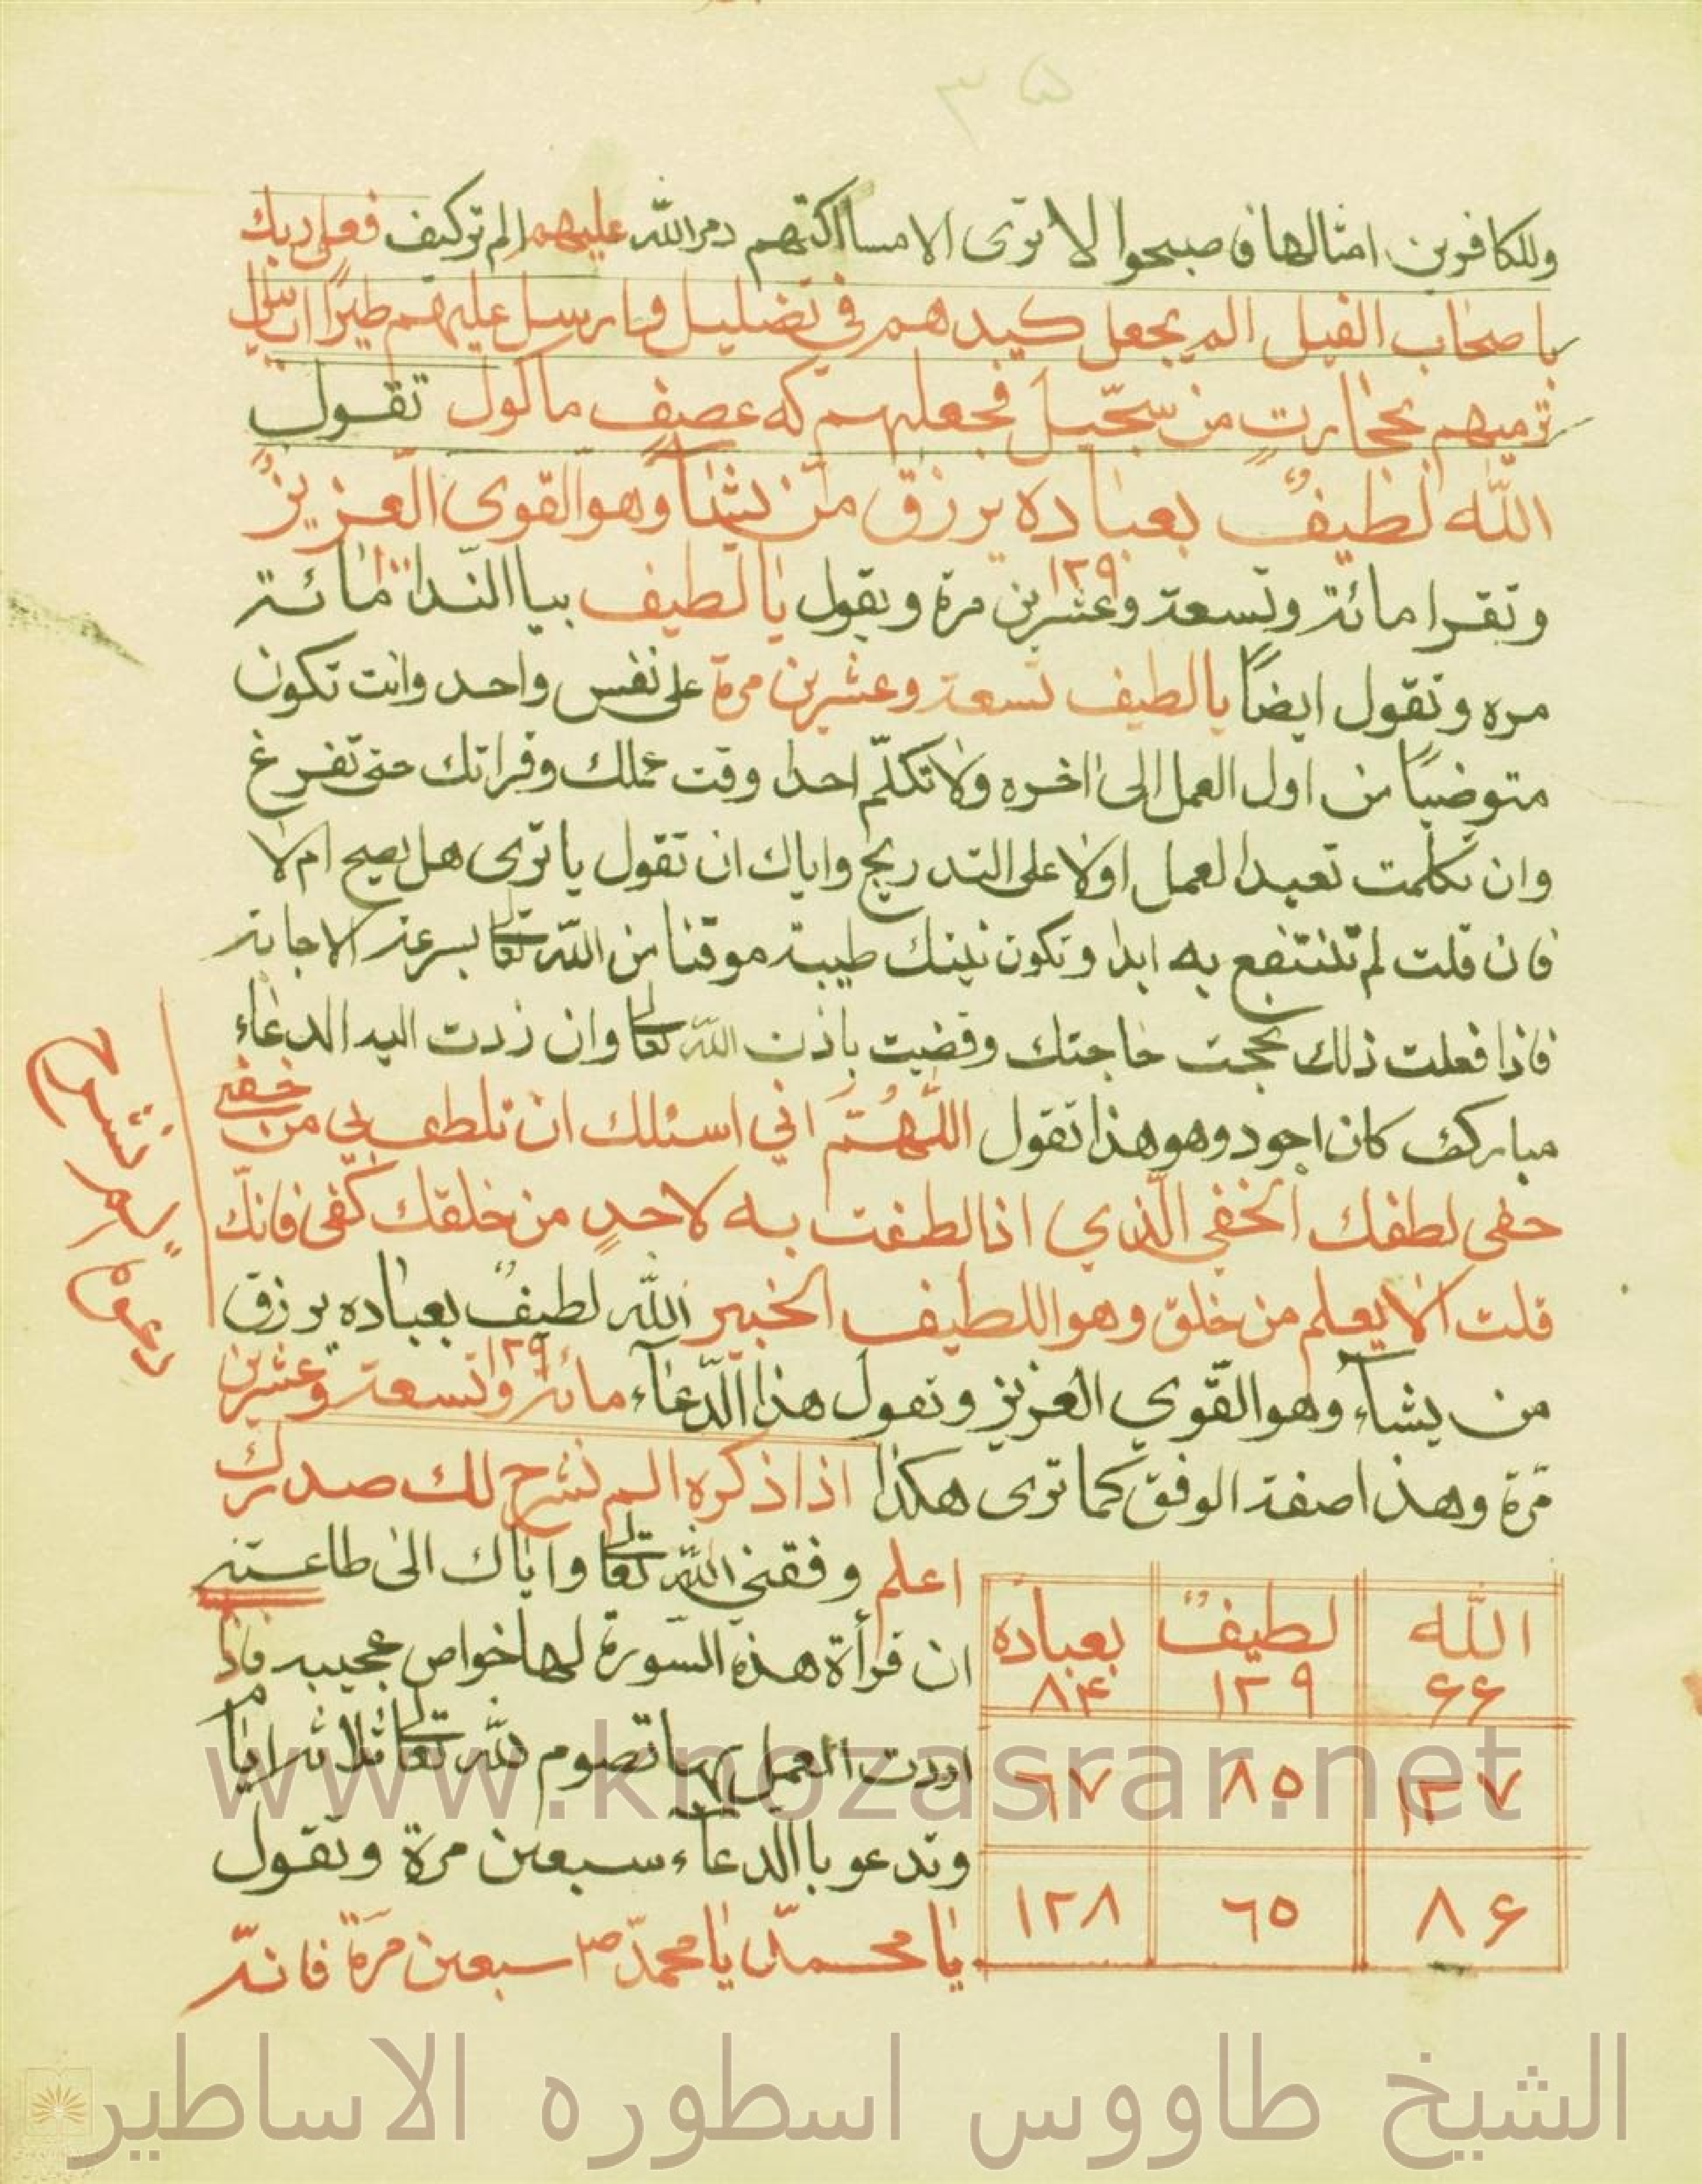 ٣٥
وللكافرين امثالها فاصبحوا لا ترى الا مساكنهم دمر الله عليهم الم تر كيف فعل ربك
باصحاب الفيل الم يجعل كيدهم في تضليل وارسل عليهم طيرًا ابابيل
ترميهم بحجارت من سجّيل فجعلهم كه عصف ماكول تقول
اللّه لطيفٌ بعباده يرزق من يشآ وهو القوى العزيزُ
وتقرا مائة وتسعة وعشرين ١٢٩ مرة وتقول يا لطيف بيا الندا مائة
مره وتقول ايضًا يا لطيف تسعة وعشرين مرة على نفس واحد وانت تكون
متوضيًا من اول العمل الى اخره ولا تكلّم احدا وقت عملك وقراتك حتى تفرغ
وان تكلمت تعيد العمل اولا على التدريج واياك ان تقول يا ترى هل يصح ام لا
فان قلت لم تنتفع به ابدا وتكون نيتك طيبة موقنا من اللّه تعالى بسرعة الاجابة
فاذا فعلت ذلك نجحت حاجتك وقضيت باذن اللّه تعالى وان زدت اليه الدعاء
مبارك كان اجود وهو هذا تقول اللّهُمَّ اني اسئلك ان تلطف بي من خفي
خفى لطفك الخفي الّذي اذا لطفت به لاحدٍ من خلقك كفى فانّك
قلت الا يعلم من خلق وهو اللطيف الخبير اللّه لطيفٌ بعباده يرزق
من يشآء وهو القّوي العزيز وتقول هذا الدّعآء مائة وتسعة وعشرين ١٢٩
مرّة وهذا صفة الوفق كما ترى هكذا اذا ذكره الم نشرح لك صدرك
اعلم وفقني اللّه تعالى واياك الى طاعته
ان قرأة هذه السّورة لها خواص عجيبه فاذا
اردت العمل بها تصوم للّه تعالى ثلاثة ايام
وتدعو با الدعآء سبعين مرة وتقول
يا محمّد يا محمّد ص سبعين مرّة فانه
اللّه لطيفٌ بعباده
٦٦ ١٢٩ ٨٤
١٢٧ ٨٥ ٦٧
٨٦ ٦٥ ١٢٨
دعوة الم نشرح
www.knozasrar.net
الشيخ طاووس اسطوره الاساطير